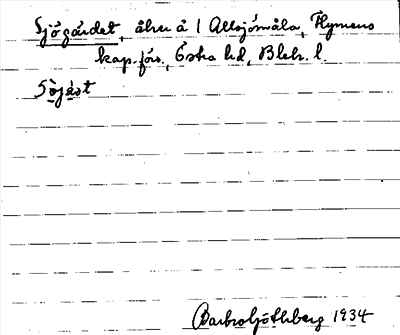 Sjögärdet, åker å 1 Allsjömåla, Flymens
kap.förs., Östra hd, Blek. l.
Barbro Sjöthberg 1934